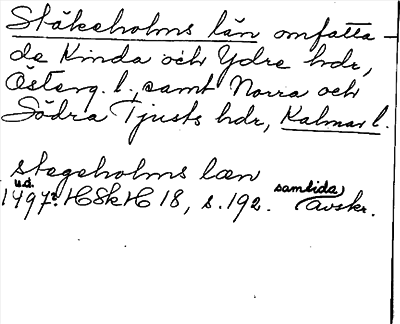 Stäkeholms län omfatta-
de Kinda och Ydre hdr,
Österg. l., samt Norra och
Södra Tjusts hdr, Kalmar l.
stegeholms læn
u.d. samtida
1497? HSkH 18, s. 192. Avskr.